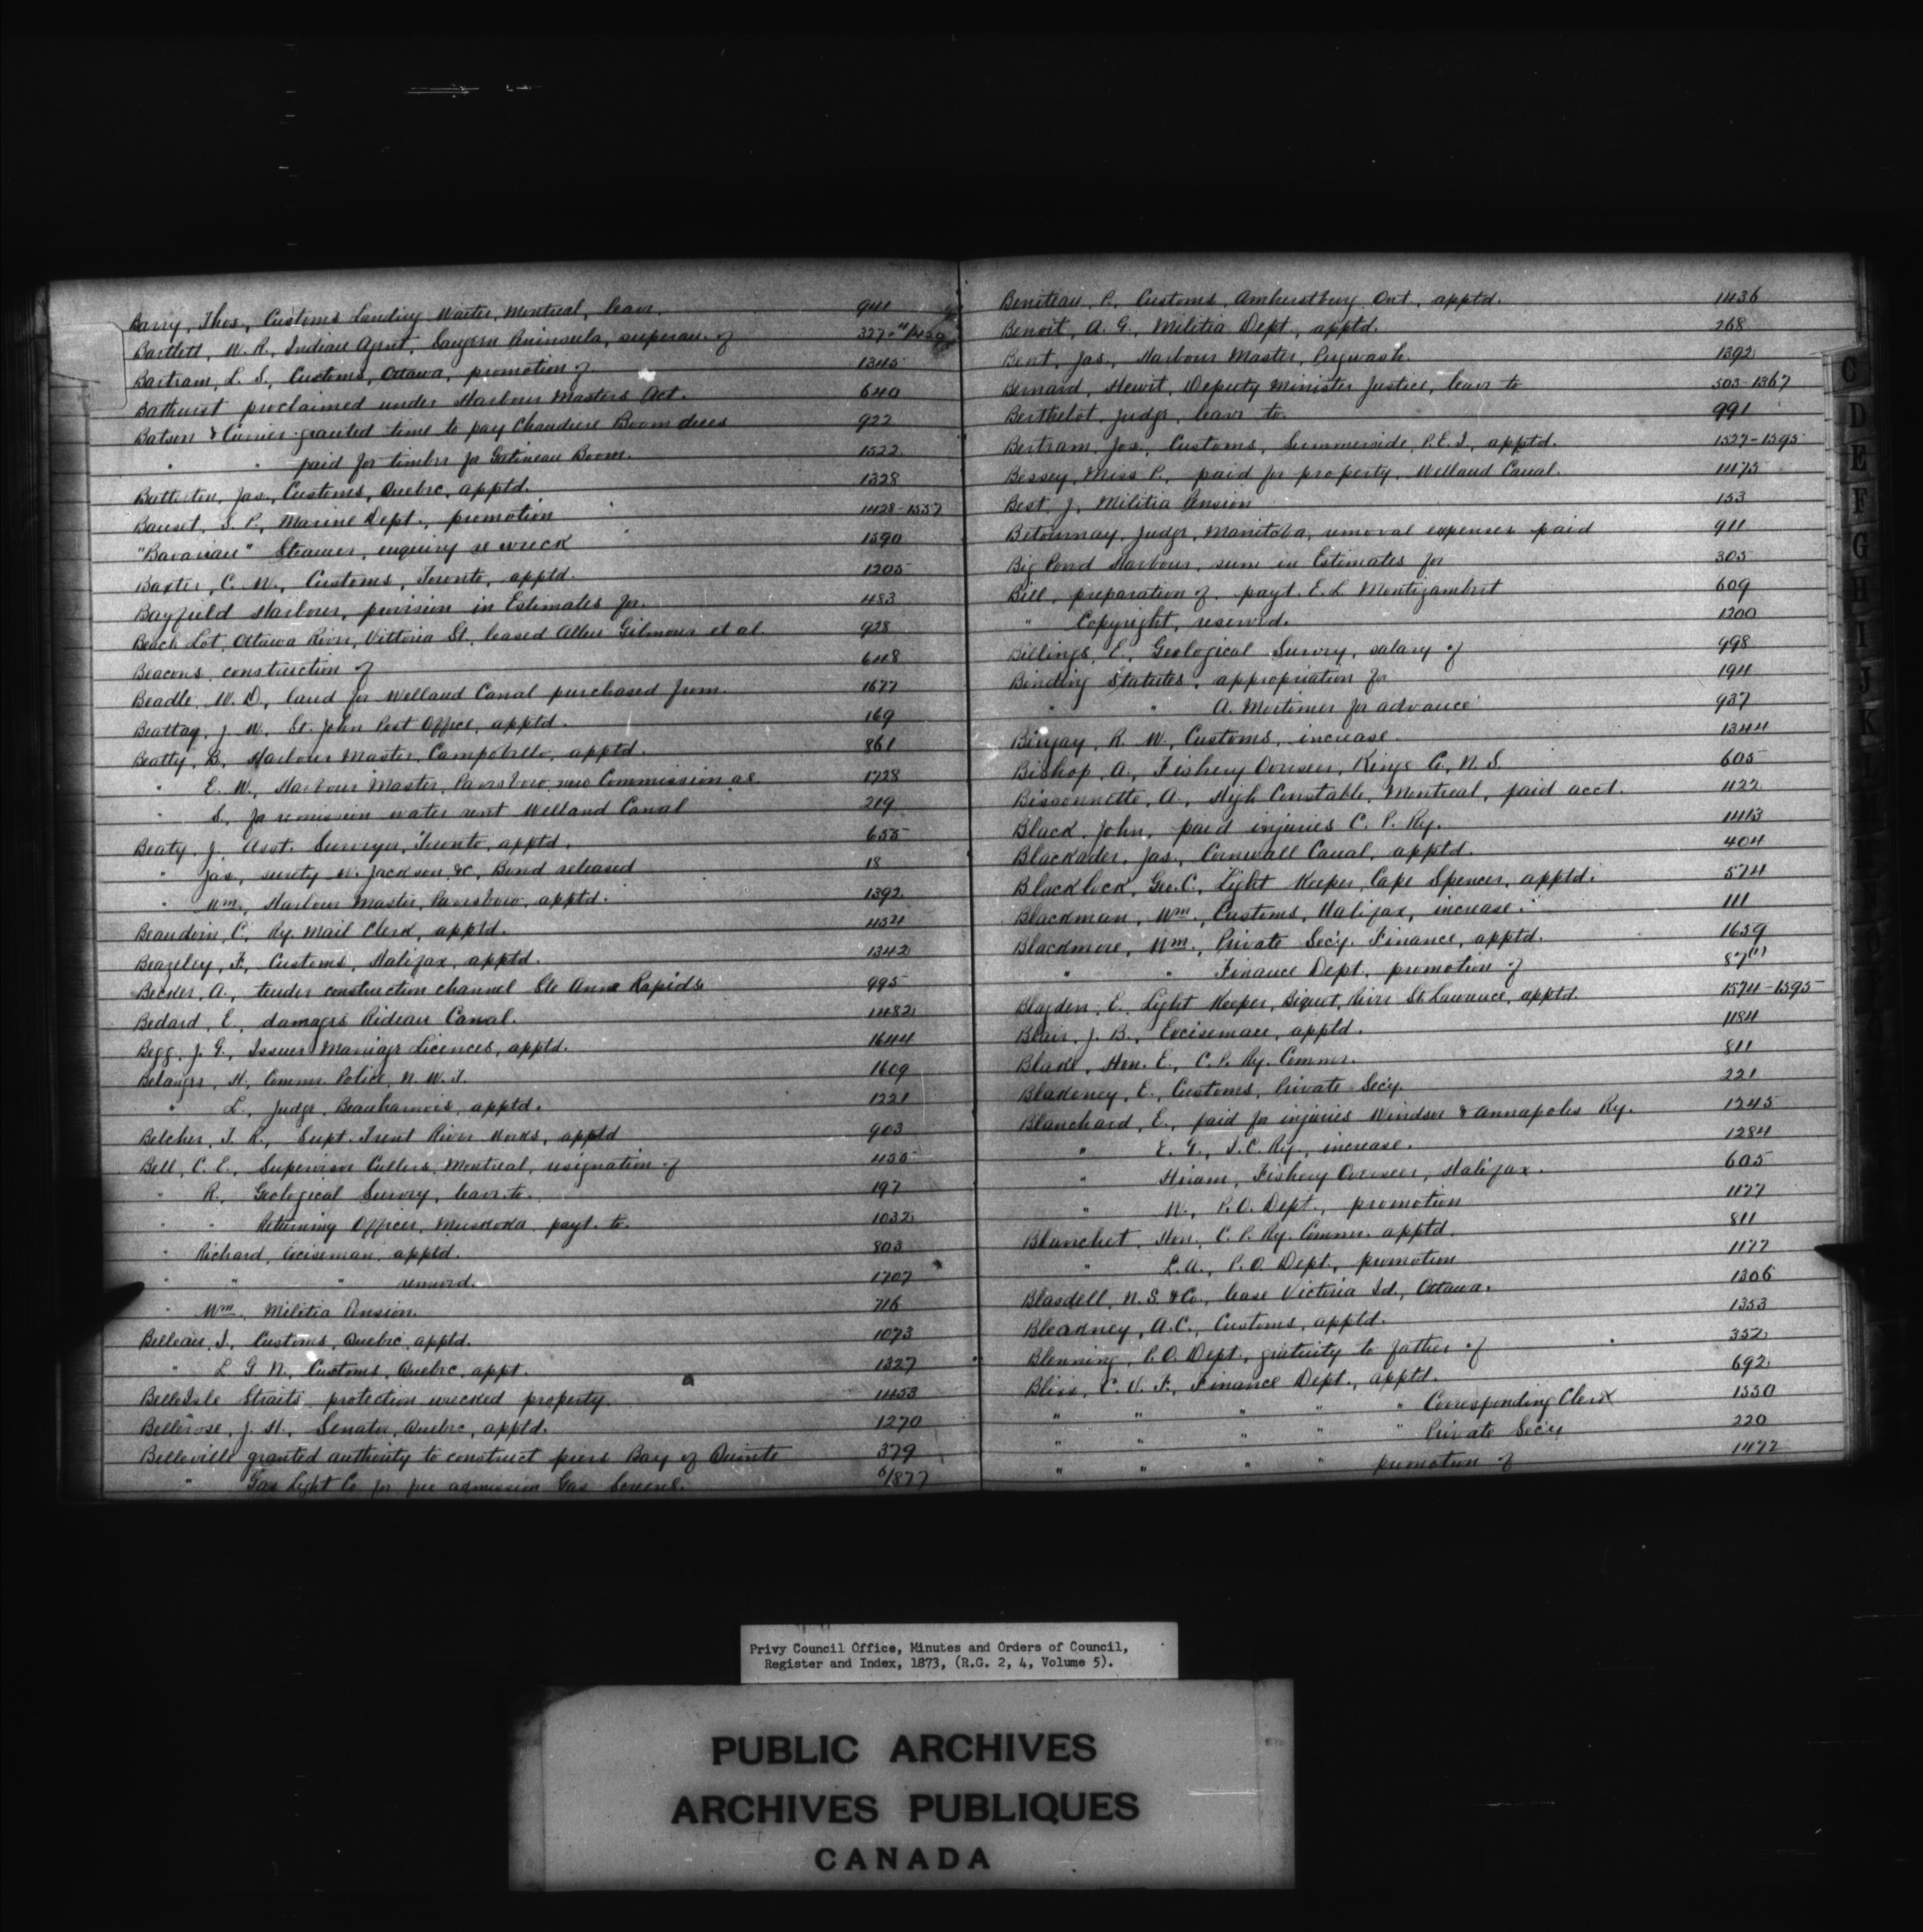 Barry, Thos., Customs Landing Waiter, Montreal, leave. 941
Bartlett, W. R., Indian Agent, Saugeen Peninsula, superan. of 327
Bartram, L. S., Customs, Ottawa, promotion of 1345
Bathurst proclaimed under Harbour Masters Act. 640
Batson & Currier granted time to pay Chaudiere Boom dues 922
" " paid for timber for Gatineau Boom. 1522
Batterton, Jas., Customs, Quebec, apptd. 1328
Bauset, S. P., Marine Dept., promotion 1428-1557
"Bavarian" Steamer, enquiry re wreck 1590
Baxter, C. W., Customs, Toronto, apptd. 1205
Bayfield Harbour, provision in Estimates for. 483
Beach Lot, Ottawa River, Vittoria St. leased Allen Gilmour et al. 928
Beacons, construction of 648
Beadle, W. D., land for Welland Canal purchased from. 1677
Beattay, J. W., St. John Post Office, apptd. 169
Beatty, B., Harbour Master, Campobello, apptd. 861
" E. W., Harbour Master, Parrsboro, new Commission as. 1728
" S. for remission water rent Welland Canal 219
Beaty, J. Asst. Surveyor, Toronto, apptd. 655
" Jas., surety W. Jackson, &c, Bond released 18
" Wm., Harbour Master, Parrsboro, apptd. 1392
Beaudoin, C., Ry. Mail Clerk, apptd. 454
Beazeley, F., Customs, Halifax, apptd. 1342
Becker, A., tender construction channel Ste Anne Rapids 995
Bedard, E., damages Rideau Canal. 1482
Begg, J. G., Issuer Marriage Licences, apptd. 1644
Belanger, H., Commr. Police, N. W. T. 1609
" L., Judge, Beauharnois, apptd. 1221
Belcher, T. R., Supt. Trent River Works, apptd 903
Bell, C. E., Supervisor Cullers, Montreal, resignation of 455
" R., Geological Survey, leave to. 197
" " Returning Officer, Muskoka, payt. to. 1032
" Richard, Exciseman, apptd. 803
" " " removed. 1707
" Wm., Militia Pension. 716
Belleau, I., Customs, Quebec, apptd. 1073
" L. G. N., Customs, Quebec, appt. 1327
Belleisle Straits, protection wrecked property. 1453
Bellerose, J. H., Senator, Quebec, apptd. 1270
Belleville granted authority to construct piers Bay of Quinte 379
" Gas Light Co for free admission Gas Screens. 1877
Beneteau, P., Customs, Amherstburg Ont., apptd. 1436
Benoit, A. G., Militia Dept., apptd. 268
Bent, Jas., Harbour Master, Pugwash. 1392
Bernard, Hewit, Deputy Minister Justice, leave to 303-1367
Berthelot, Judge, leave to. 991
Bertram, Jos., Customs, Summerside, P.E.I., apptd. 1527-1595
Bessey, Miss P., paid for property, Welland Canal. 1475
Best, J., Militia Pension 153
Betournay, Judge, Manitoba, removal expenses paid 911
Big Pond Harbour, sum in Estimates for 305
Bill, preparation of, payt. E. L. Montizambert 609
" Copyright, reserved. 1200
Billings, E., Geological Survey, salary of 998
Binding Statutes, appropriation for 194
" " A. Mortimer for advance 937
Binjay, R. W., Customs, increase. 1344
Bishop, A., Fishery Overseer, Kings Co., N. S. 605
Bissonnette, A., High Constable, Montreal, paid acct. 1122
Black, John, paid injuries C. P. Ry. 1413
Blackader, Jas., Cornwall Canal, apptd. 404
Blacklock, Geo. C., Light Keeper, Cape Spencer, apptd. 574
Blackman, Wm., Customs, Halifax, increase. 111
Blackmore, Wm., Private Secy. Finance, apptd. 1659
" " Finance Dept., promotion of 87
Blagden, E., Light Keeper, Biquet, River St. Lawrence, apptd. 1574-1595
Blair, J. B., Exciseman, apptd. 1184
Blake, Hon. E., C. P. Ry. Commr. 811
Blakeney, E., Customs, Private Secy. 221
Blanchard, E., paid for injuries Windsor & Annapolis Ry. 1245
" E. G., I. C. Ry., increase. 1284
" Hiram, Fishery Overseer, Halifax. 605
" W., P. O. Dept., promotion 1177
Blanchet, Hon., C. P. Ry. Commr. apptd. 811
" L. A., P. O. Dept., promotion 1177
Blasdell, N. S. & Co., lease Victoria Id., Ottawa. 1306
Bleakney, A. C., Customs, apptd. 1353
Blenning, P. O. Dept., gratuity to father of 352
Bliss, C. V. F., Finance Dept., apptd. 692
" " " " " Corresponding Clerk 1550
" " " " " Private Secy 220
" " " " promotion of 1472
C
D
E
F
G
H
I
J
K
Privy Council Office, Minutes and Orders of Council,
Register and Index, 1873, (R.G. 2, 4, Volume 5).
PUBLIC ARCHIVES
ARCHIVES PUBLIQUES
CANADA